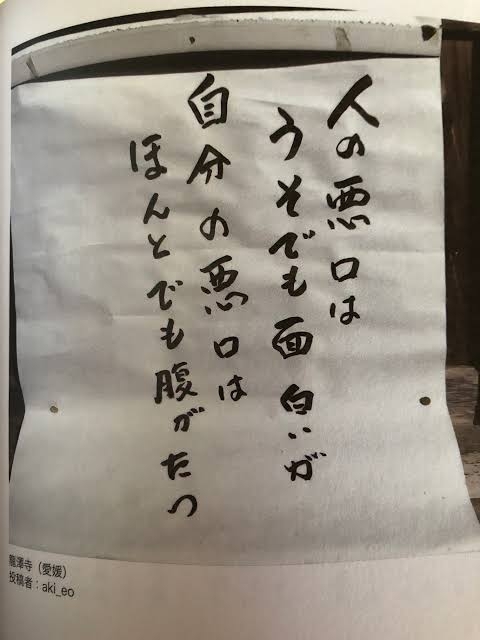 人の悪口は
うそでも面白いが
自分の悪口は
ほんとでも腹がたつ
龍澤寺（愛媛）
投稿者：aki_eo